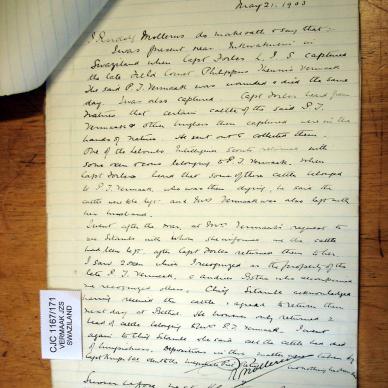 May 21. 1903
I Rudolf Mollerus do make oath & say that:-
I was present near in
Swaziland when Capt Forbes L.I.S captured
the late Field Cornet Philippus Theunis Vermaak
The said P.T. Vermaak was wounded & died the same
day. I was also captured. Capt Forbes heard from
Natives that certain cattle of the said P.T.
Vermaak & other burghers then captured were in the
hands of natives. He sent out & collected them.
One of the Intelligence Scouts returned with
some oxen & cows belonging to P.T. Vermaak. When
Capt Forbes heard that some of these cattle belonged
to P.T. Vermaak, who was then dying, he said the
cattle must be left. and Mrs Vermaak was also left with
her husband.
I went after the war, at Mrs Vermaak's request to
see with whom she informed me the cattle
had been left, after Capt Forbes returned them to her.
I saw 2 oxen which I recognized as the property of the
late P.T. Vermaak, & Andries Botha who accompanied
me recognized them. Chief acknowledged
having received the cattle & agreed to return them
next day, at Bethel. He however only returned 2
head of cattle belonging to Mrs P.T. Vermaak. I went
again to this & he said all the cattle had died
of lungsickness. Depositions in this matter were taken by
Sworn before me at
CJC 1167/171
VERMAAK JZS
SWAZILAND